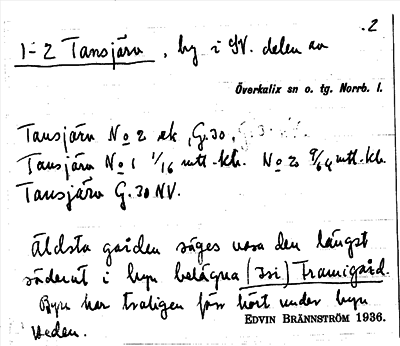 . 2
1-2 Tansjärv, by i SV. delen av
Överkalix sn o. tg. Norrb. l.
Tansjärv No 2 ek, G.30,
Tansjärv No 1 1/16 mtl. kh. No 2 9/64 mtl. kh.
Tansjärv G. 30 NV.
Äldsta gården säges vara den längst
söderut i byn belägna (3si) Framigård.
Byn har troligen förr hört under byn
Heden.
EDVIN BRÄNNSTRÖM 1936.